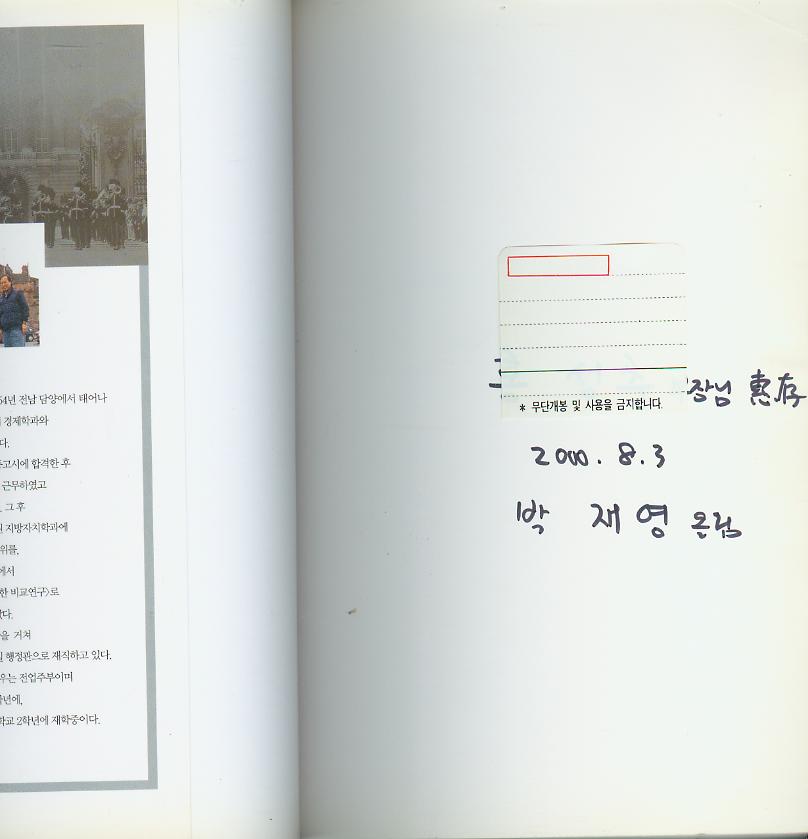 54년 전남 담양에서 태어나
경제학과와
다.
고시에 합격한 후
근무하였고
그 후
지방자치학과에
위를,
에서
한 비교연구>로
았다.
을 거쳐
행정관으로 재직하고 있다.
우는 전업주부이며
학년에,
학교 2학년에 재학중이다.
장님 惠存
* 무단개봉 및 사용을 금지합니다.
2000. 8. 3
박 재영 드림